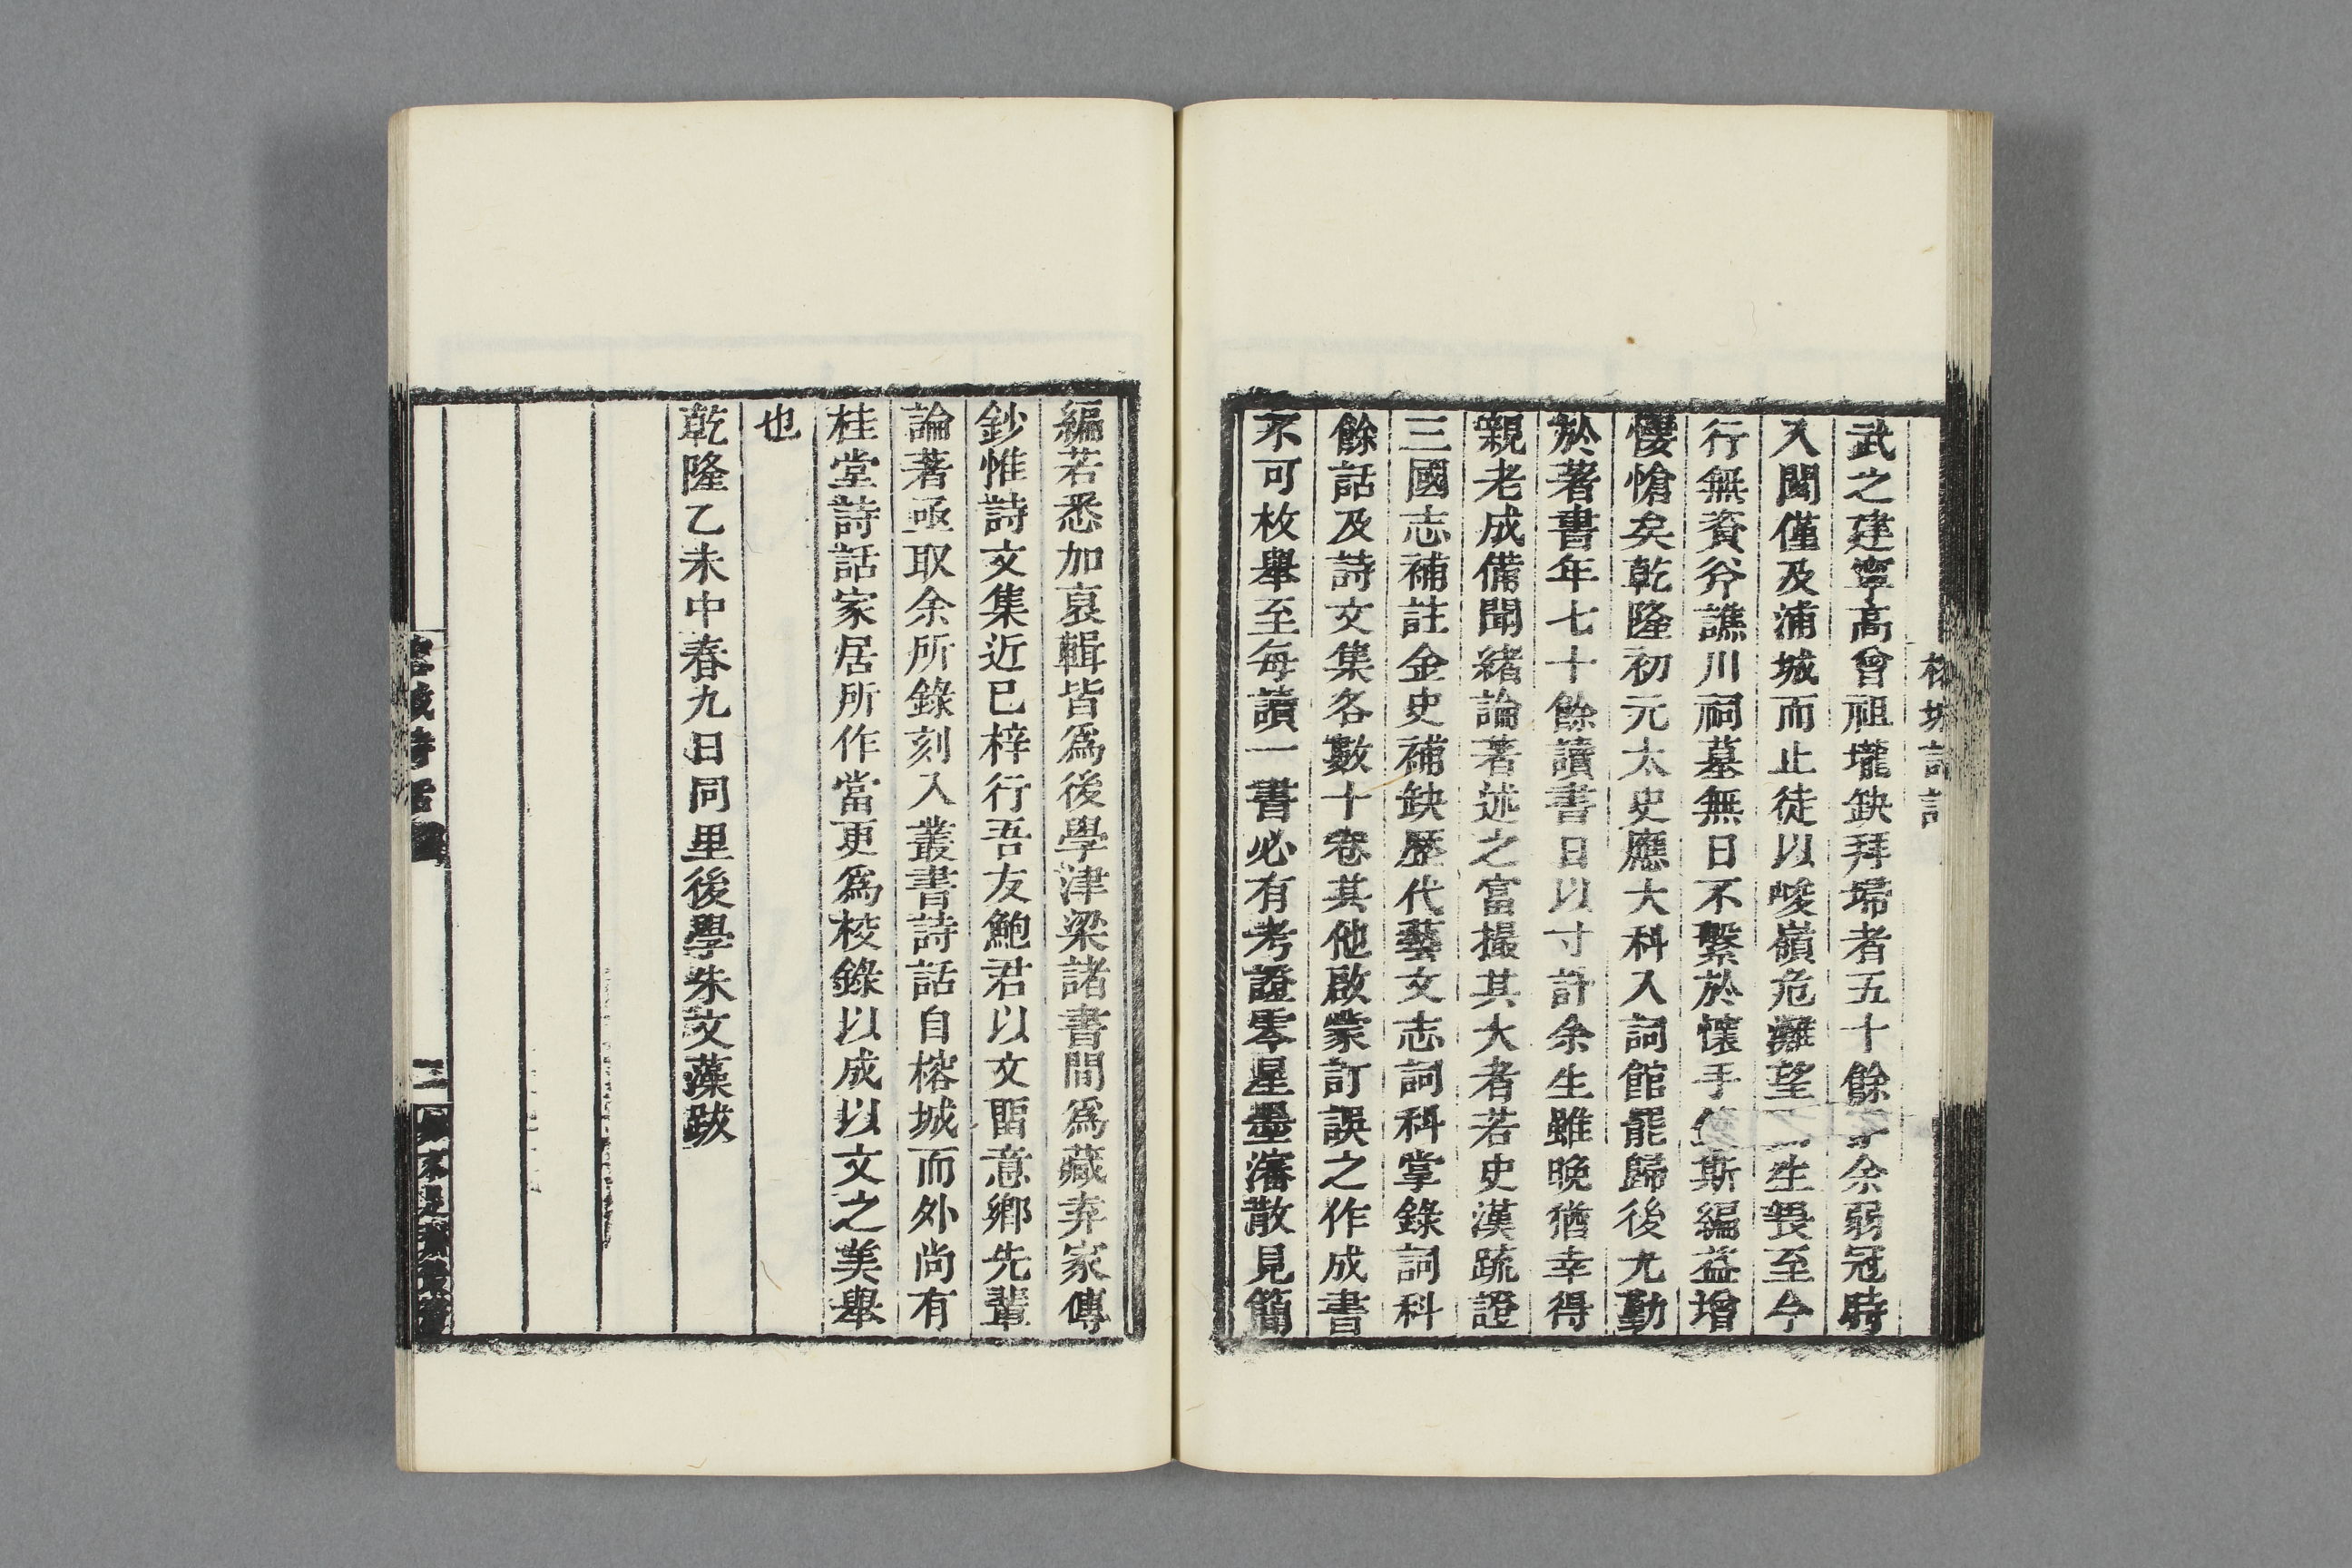 武之建寧高曾祖壠缺拜埽者五十餘年余弱冠時
入閩僅及浦城而止徒以峻嶺危灘望而生畏至今
行無資斧譙川祠墓無日不繫於懷手斯編益增
悽愴矣乾隆初元太史應大科入詞館罷歸後尤勤
於著書年七十餘讀書日以寸計余生雖晚猶幸得
親老成備聞緒論著述之富撮其大者若史漢疏證
三國志補註金史補缺歷代藝文志詞科掌錄詞科
餘話及詩文集各數十卷其他啟蒙訂誤之作成書
不可枚舉至每讀一書必有考證零星墨瀋散見簡
編若悉加裒輯皆爲後學津梁諸書間爲藏弆家傳
鈔惟詩文集近已梓行吾友鮑君以文畱意鄉先輩
論著亟取余所錄刻入叢書詩話自榕城而外尚有
桂堂詩話家居所作當更爲校錄以成以文之美舉
也
乾隆乙未中春九日同里後學朱文藻跋